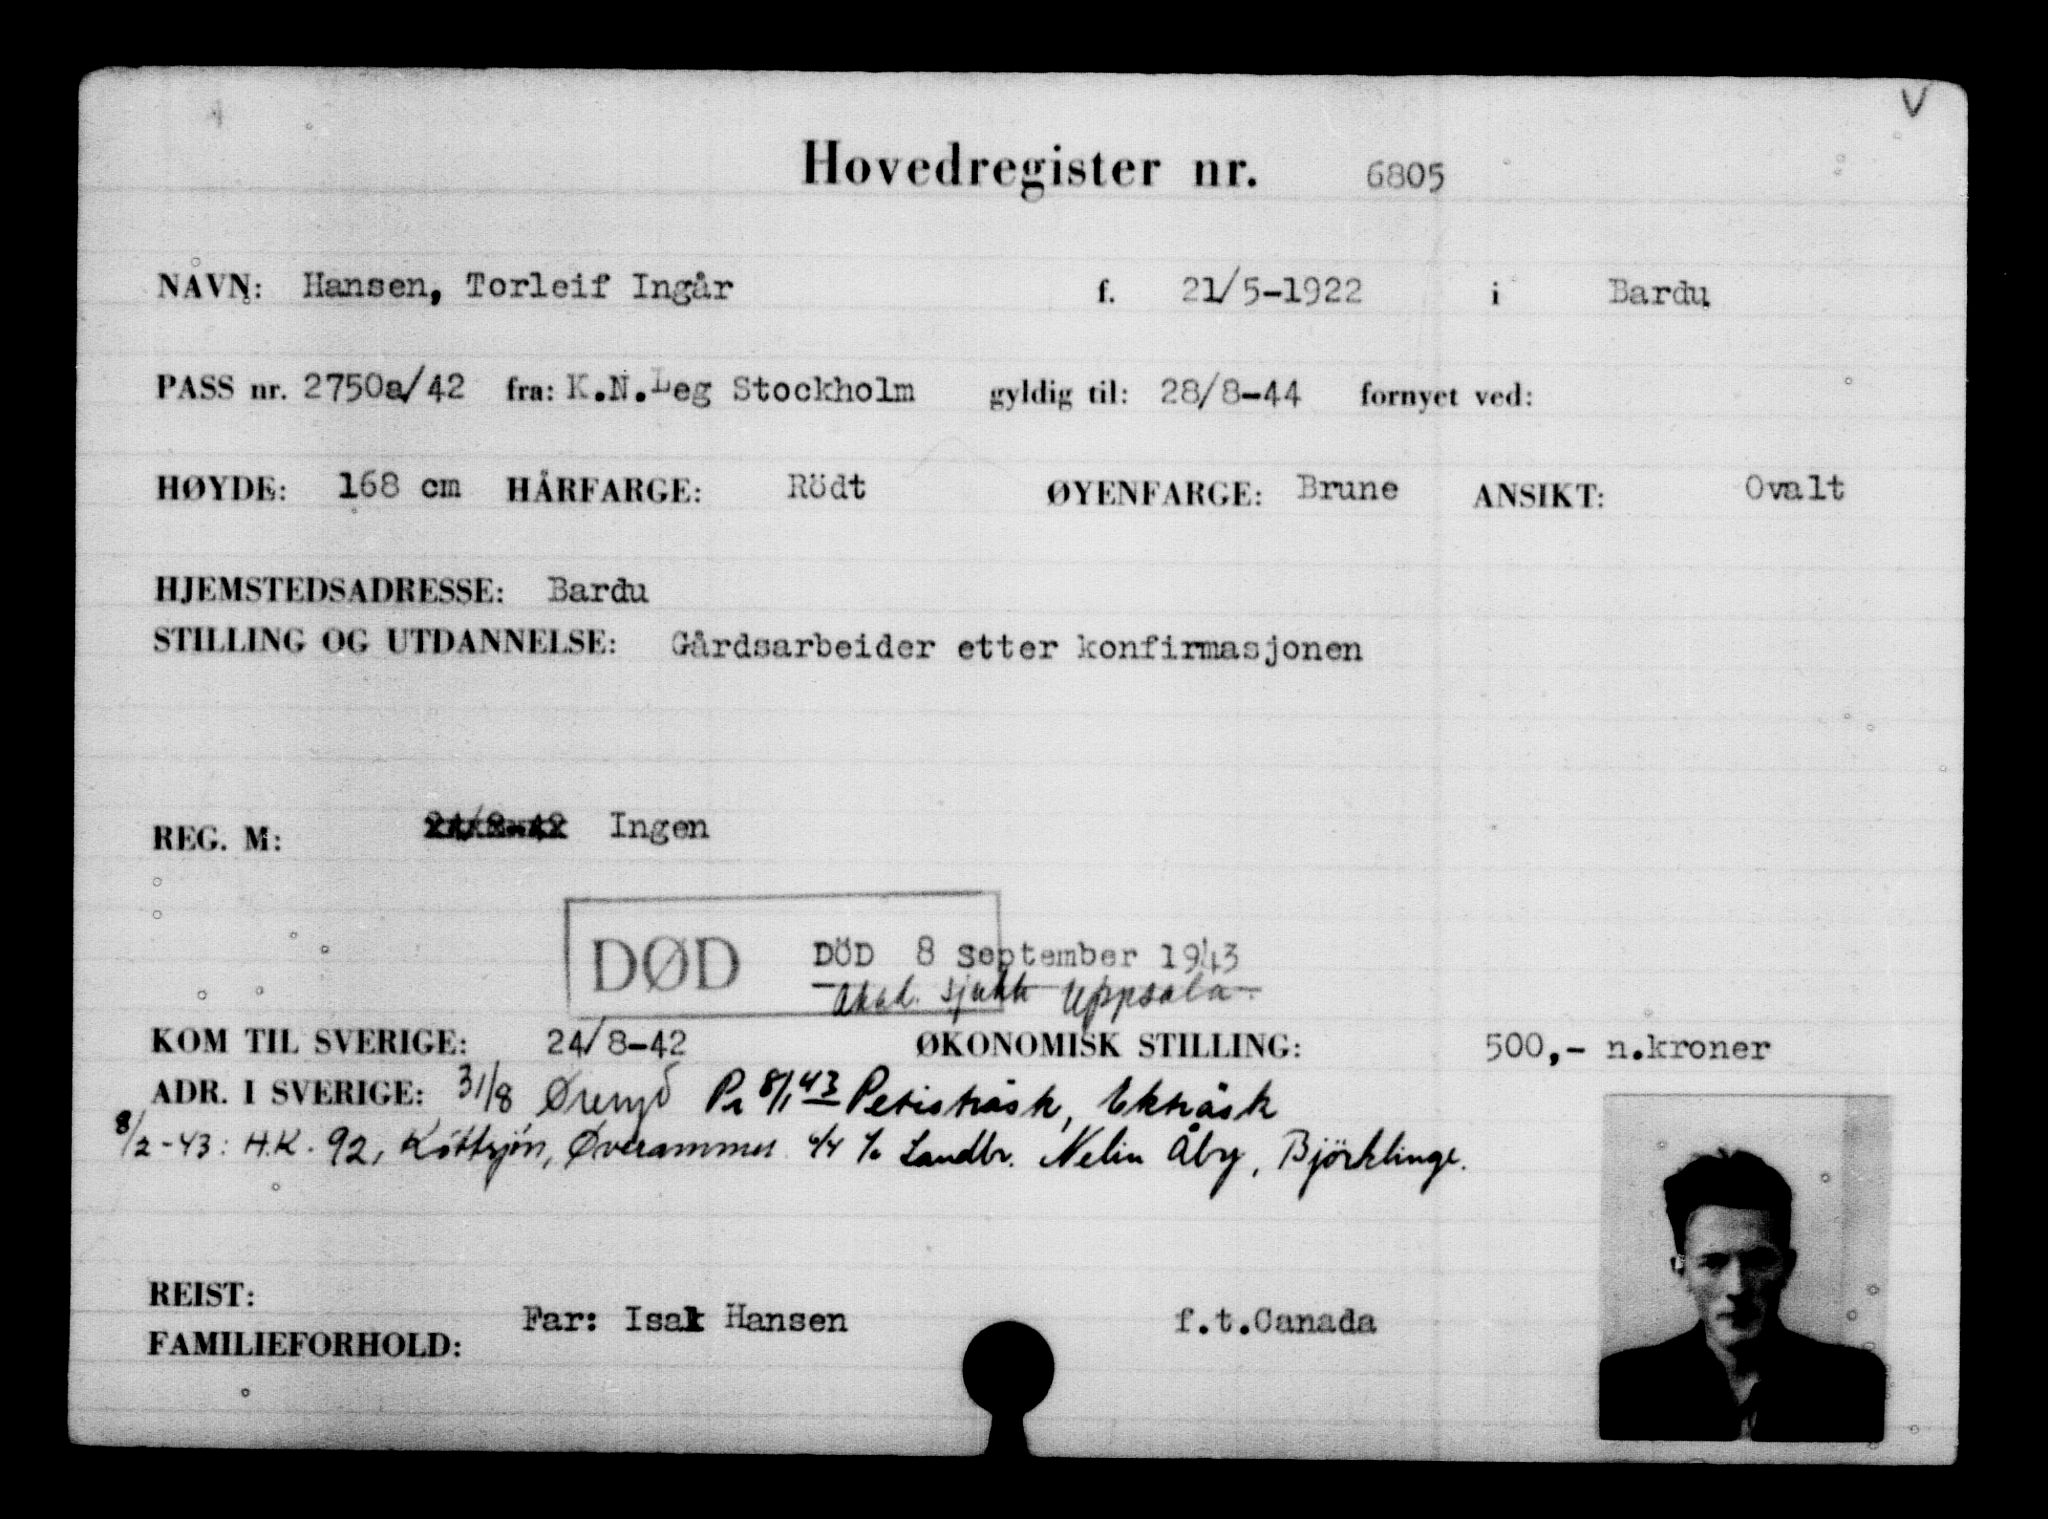 V
Hovedregister nr. 6805
NAVN: Hansen, Torleif Ingår f. 21/5-1922 i Bardu
PASS nr. 2750a/42 fra: K.N.Leg Stockholm gyldig til: 28/8-44 fornyet ved:
HØYDE: 168 cm HÅRFARGE: Rödt ØYENFARGE: Brune ANSIKT: Ovalt
HJEMSTEDSADRESSE: Bardu
STILLING OG UTDANNELSE: Gårdsarbeider etter konfirmasjonen
REG. M: 24/8-42 Ingen
DØD DÖD 8 September 1943
Akad. sjukh Uppsala.
KOM TIL SVERIGE: 24/8-42 ØKONOMISK STILLING: 500,- n.kroner
ADR. I SVERIGE: 31/8 Öreryd Pr 8/1 43 Petisträsk, Ekträsk
8/2-43: H.K. 92, Köttsjön, Øverammer 4/4 Landbr. Nelin Åby, Björklinge.
REIST:
FAMILIEFORHOLD: Far: Isak Hansen f.t.Canada